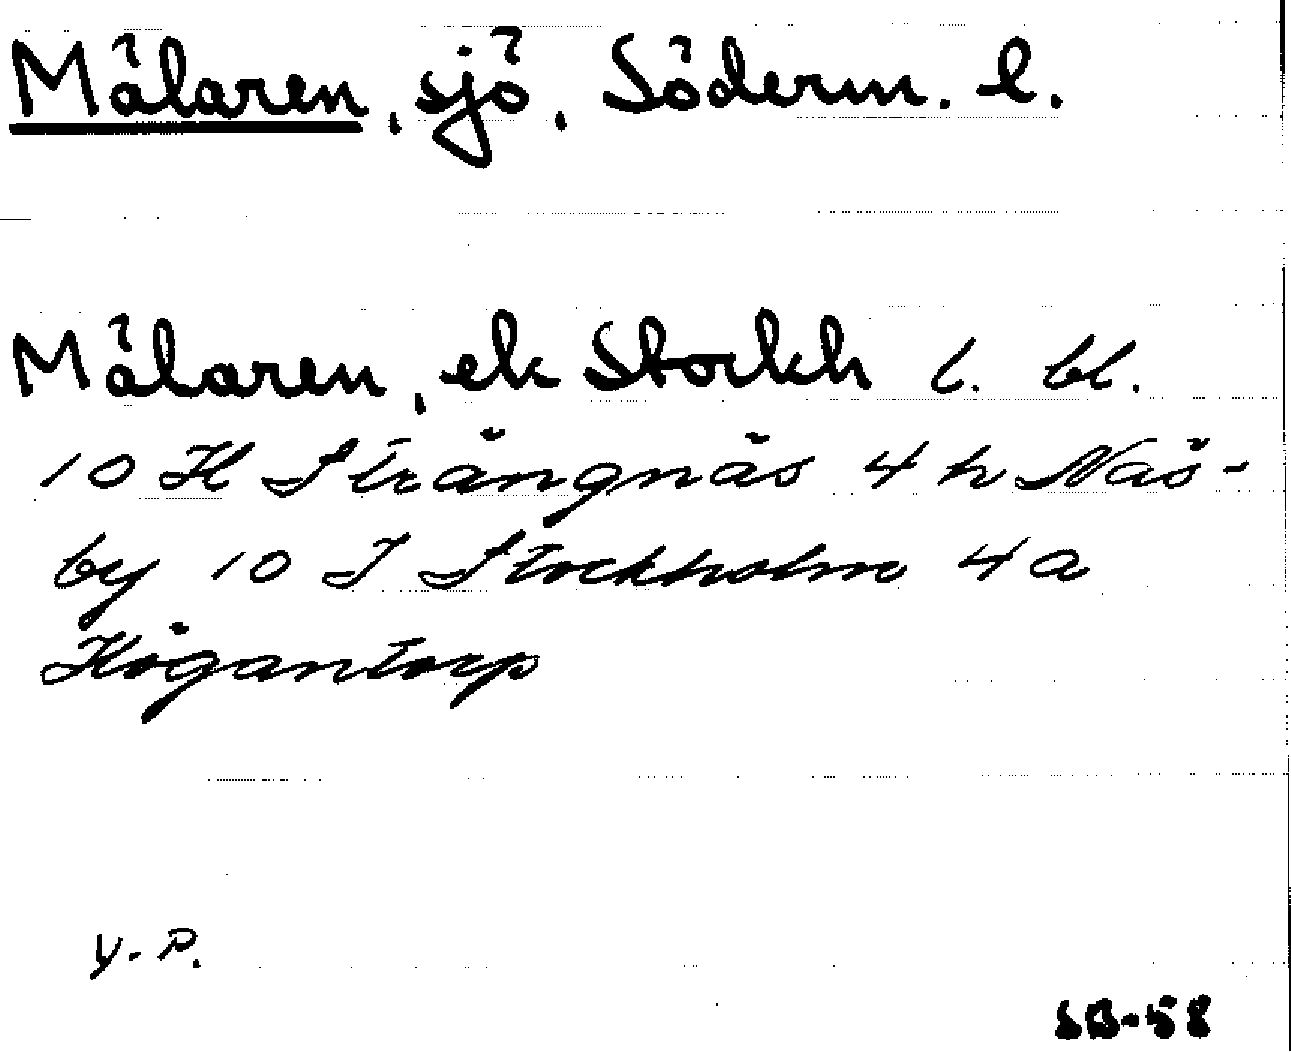 Mälaren, sjö, Söderm. l.
Mälaren, ek Stockh l. bl.
10 H Strängnäs 4 h Näs-
by 10 I Stockholm 4 a
Högantorp
y. P.
SB-58